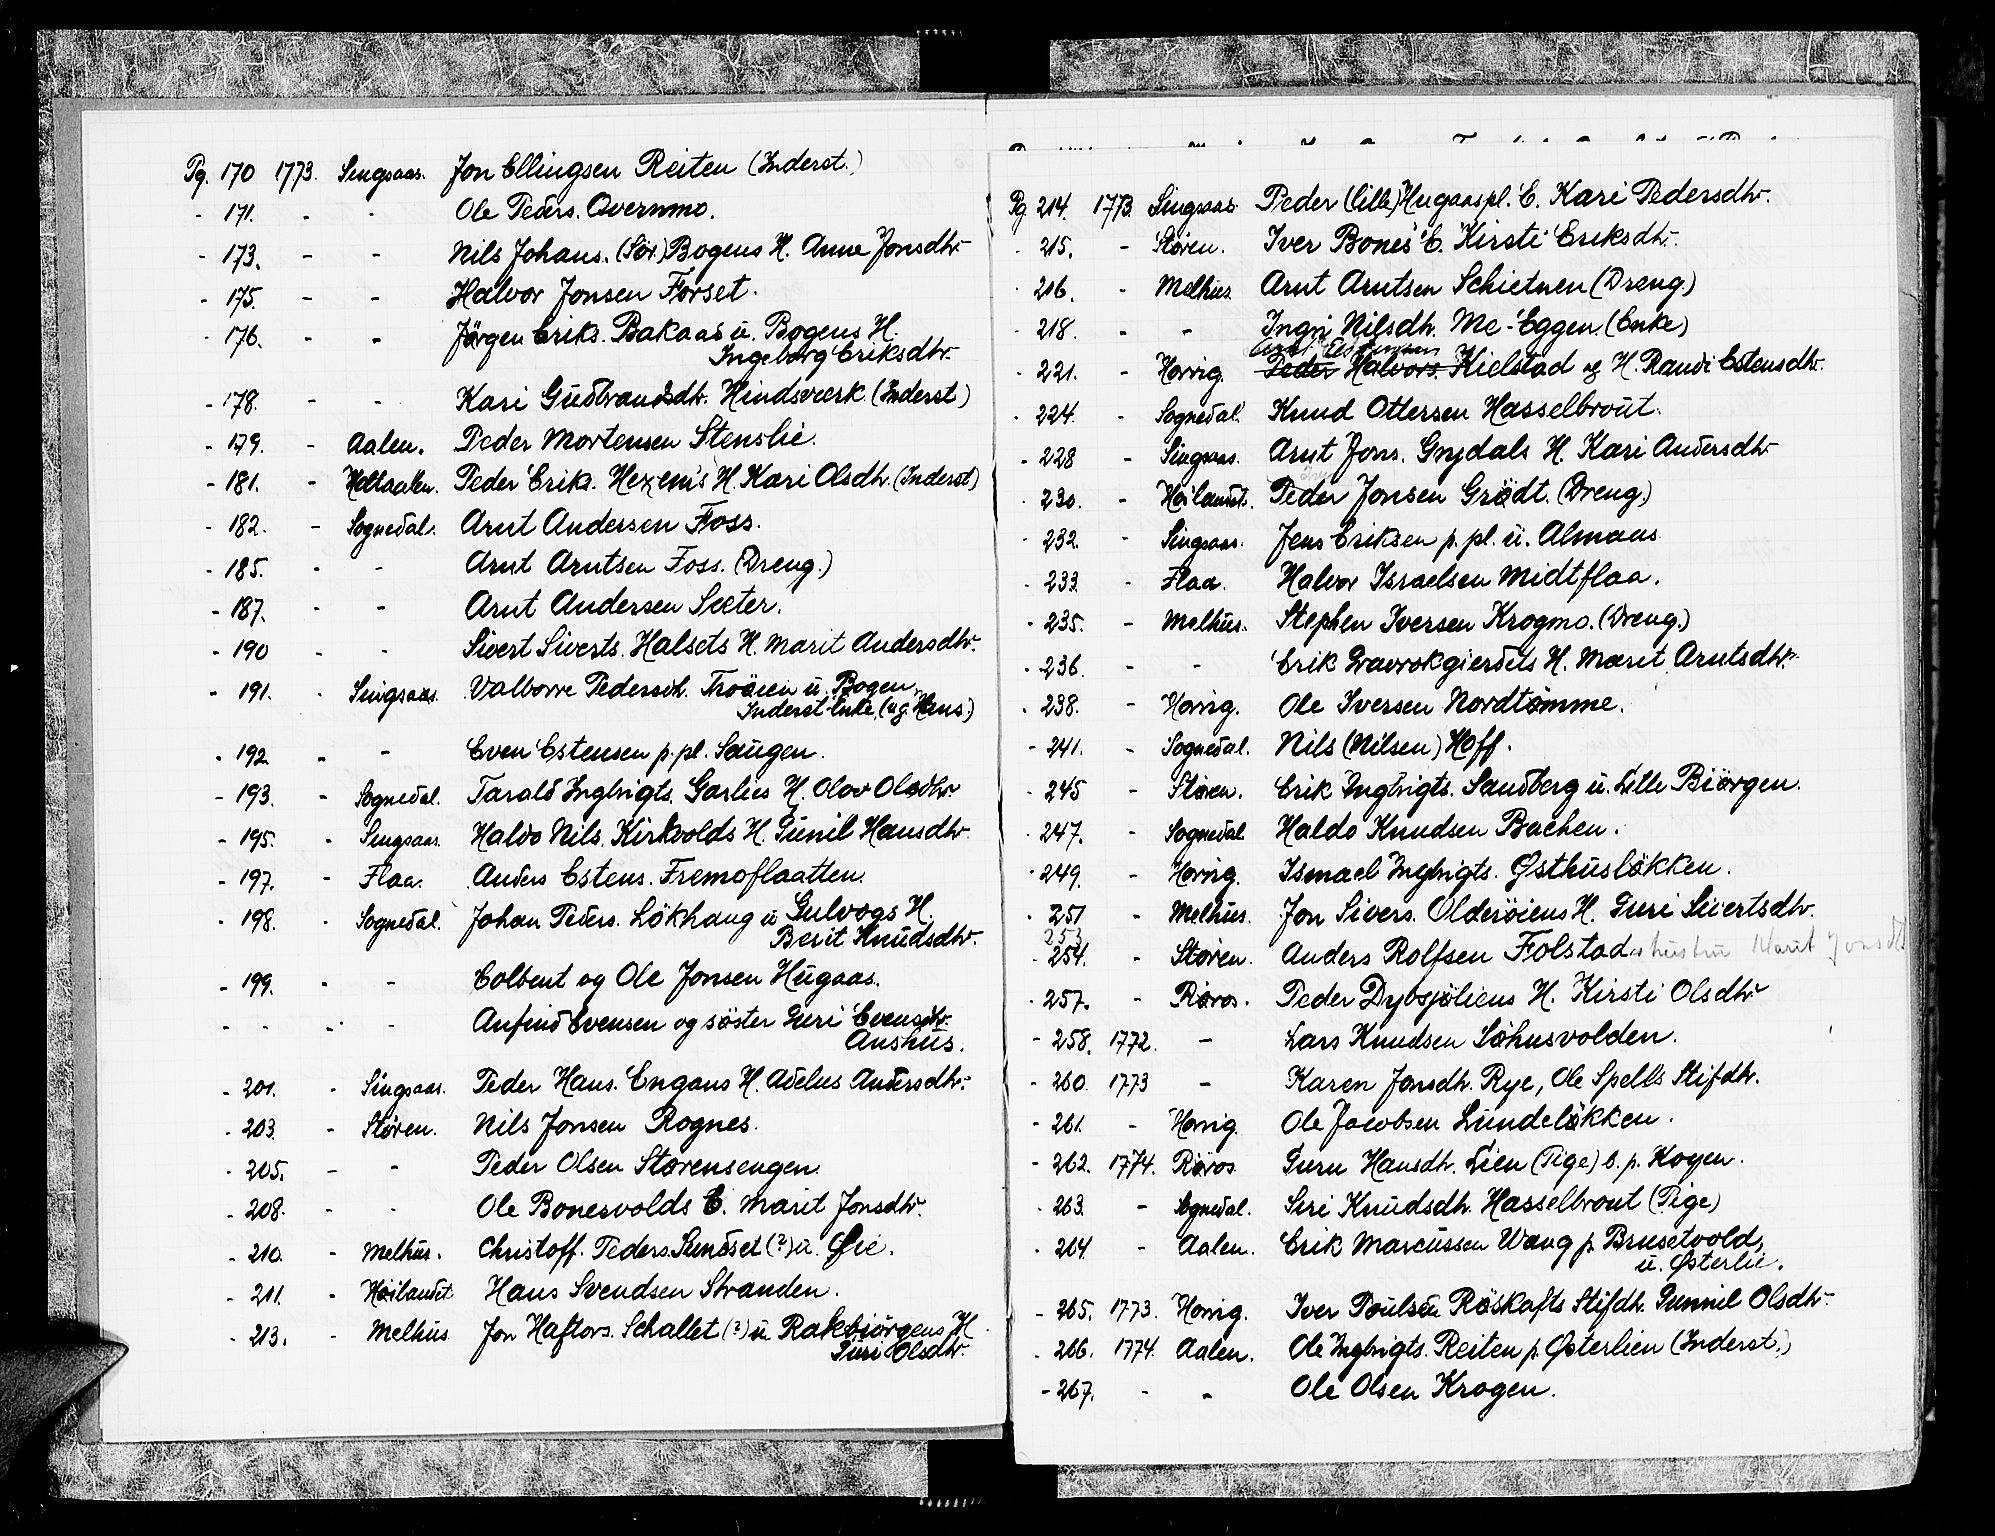 Pg. 170 1773. Singsaas. Jon Ellingsen Reiten (Inderst.)
- 171. - - Ole Peders. Overmmo.
- 173. - - Nils Johans. (Sör.) Bogens H. Anne Jonsdtr.
- 175. - - Halvor Jonsen Forset.
- 176. - - Jörgen Eriks. Bakaas u. Bogens H.
Ingeborg Eriksdtr.
- 178. - - Kari Gudbrandsdtr. Hindsværk. (Inderst)
- 179. - Aalen. Peder Mortensen Stenslie.
- 181. - Holtaalen. Peder Eriks. Hexem's H. Kari Olsdtr. (Inderst)
- 182. - Sognedal. Arnt Andersen Foss.
- 185. - - Arnt Arntsen Foss. (Dreng.)
- 187. - - Arnt Andersen Sæter.
- 190 - - Sivert Siverts. Halsets H. Marit Andersdtr.
- 191. - Singsaas. Valborre Pedersdt. Troöien u. Bogen,
Inderst-Enke, (ug. Hans.)
- 192 - - Even Estensen p. pl. Saugen.
- 193. - Sognedal. Tarald Ingbrigts. Garlies H. Olov Olsdtr.
- 195. - Singsaas. Haldo Nils. Kirkvolds H. Gunil Hansdtr.
- 197. - Flaa. Anders Estens. Fremoflaatten.
- 198. - Sognedal. Johan Peders. Lökhaug u Gulvogs H.
Berit Knudsdtr.
- 199. - - Colbent og Ole Jonsen Hugaas.
- - - - Anfind Evensen og söster Guri Evensdtr.
Aushus.
- 201. - Singsaas. Peder Hans. Engans H. Adelus Andersdtr.
- 203. - Støren. Nils Jonsen Rognes.
- 205. - - Peder Olsen Storensengen.
- 208. - - Ole Bonesvolds E. Marit Jonsdtr.
- 210. - Melhus. Christoff. Peders. Sundset (?) u. Øie.
- 211. - Høilandet Hans Svendsen Stranden.
- 213. - Melhus Jon Haftors. Schallet (?) u. Rakbjörgens H.
Guri Olsdtr.
Pg 214. 1773. Singsaas. Peder (Lille) Hugaaspl. E. Kari Pedersdtr.
- 215. - Støren. Iver Bones' E. Kirsti Eriksdtr.
- 216. - Melhus. Arnt Arntsen Schietnen (Dreng.)
- 218. - - Ingri Nilsdtr. Me-Eggen. (Enke)
- 221. - Horrig. Peder Halvors. Kielstad og H. Randi Estensdtr.
- 224. - Sognedal. Knud Ottersen Hasselbrout.
- 228 - Singsaas. Arnt Jons. Gnydals H. Kari Andersdtr.
- 230. - Høilandt. Peder Jonsen Grödt. (Dreng.)
- 232. - Singsaas. Jens Eriksen p. pl. u. Almaas
- 233. - Flaa. Halvor Israelsen Midtflaa.
- 235. - Melhus. Stephen Iversen Krogmo. (Dreng.)
- 236. - - Erik Gravrokgierdets H. Marit Arntsdtr.
- 238. - Horrig. Ole Iversen Nordtømme.
- 241. - Sognedal. Nils (Nilsen) Hoff.
- 245 - Støren. Erik Ingbrigts. Sandberg u. Lille Biørgen.
- 247. - Sognedal. Haldo Knudsen Bachen.
- 249. - Horrig. Ismael Ingbrigts. Østhuslökken.
- 251 - Melhus. Jon Sivers. Olderöiens H. Guri Sivertsdtr.
253
- 254. - Støren. Anders Rolfsen Folstad. s hustru Marit Jonsdt
- 257. - Røros. Peder Dybsjöliens H. Kirsti Olsdtr.
- 258. 1772. - Lars Knudsen Søhusvolden.
- 260. 1773 - Karen Jonsdtr. Rye, Ole Spells Stifdtr.
- 261. - Horrig. Ole Jacobsen Lundelökken.
- 262. 1774. Røros Guru Hansdtr. Lien (Pige) b. p. Kogen.
- 263. - Sognedal. Siri Knudsdtr. Hasselbrout (Pige)
- 264. - Aalen. Erik Marcussen Waug p. Brusetvold,
u. Østerlie.
- 265. 1773. Horrig. Iver Poulsen Röskafts Stifdtr. Gunnil Olsdtr.
- 266. 1774. Aalen. Ole Ingbrigts. Reiten p. Østerlien (Inderst.)
- 267. - - Ole Olsen Krogen.